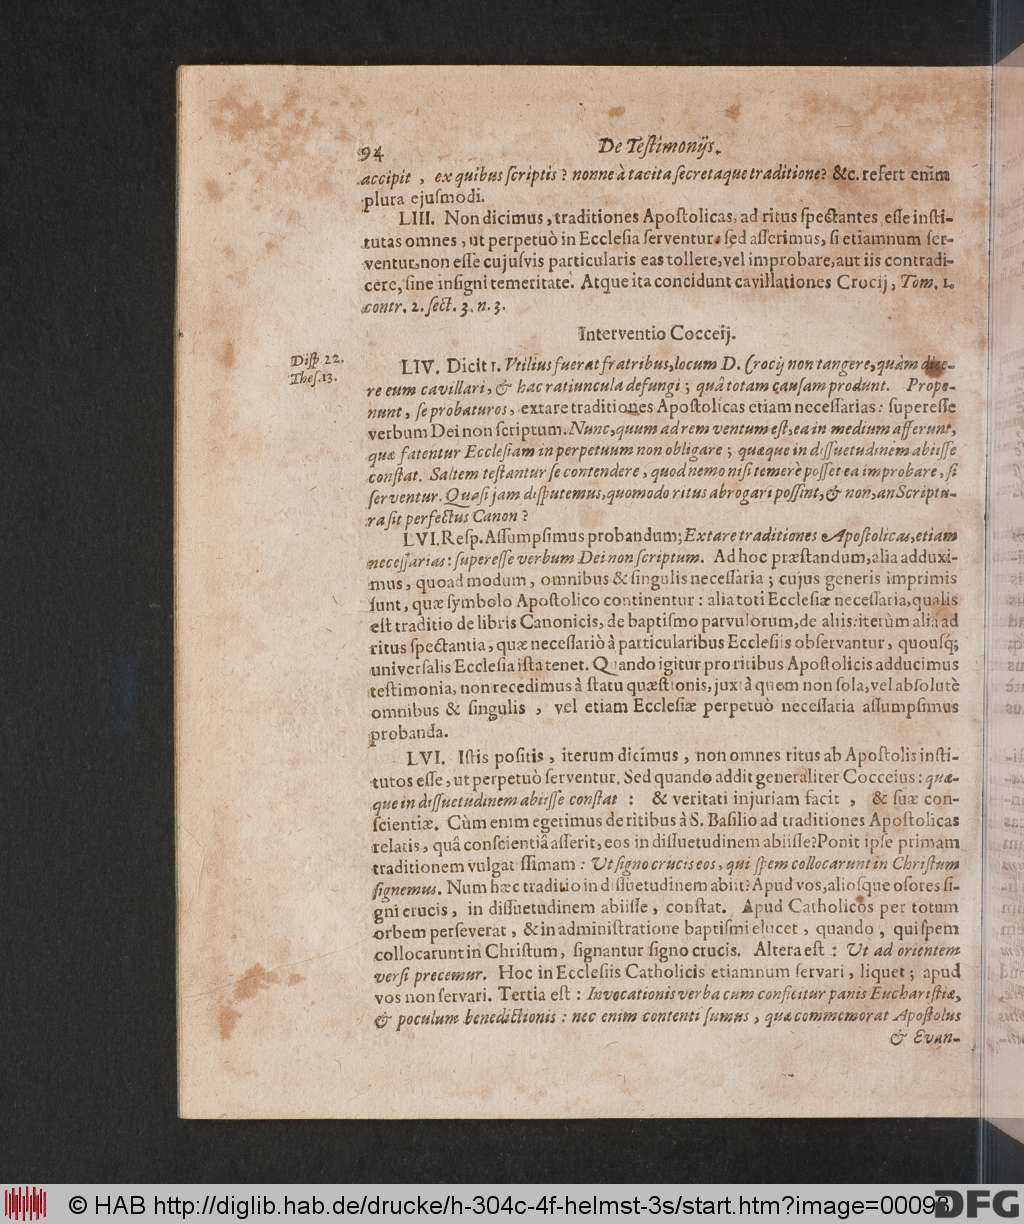 94 De Teſtimonijs.
accipit, ex quibus ſcriptis? nonne à tacita ſecretaque traditione? &c. refert enim
plura ejuſmodi.
LIII. Non dicimus, traditiones Apoſtolicas, ad ritus ſpectantes eſſe inſti-
tutas omnes, ut perpetuò in Eccleſia ſerventur: ſed aſſerimus, ſi etiamnum ſer-
ventur, non eſſe cujuſvis particularis eas tollere, vel improbare, aut iis contradi-
cere, ſine inſigni temeritate. Atque ita concidunt cavillationes Crocij, Tom. 1.
contr. 2. ſect. 3. n. 3.
Interventio Cocceij.
Diſp. 22.
Theſ. 13.
LIV. Dicit 1. Vtilius fuerat fratribus, locum D. Crocij non tangere, quàm dice-
re eum cavillari, & hac ratiuncula defungi; quâ totam cauſam produnt. Propo-
nunt, ſe probaturos, extare traditiones Apoſtolicas etiam neceſſarias: ſupereſſe
verbum Dei non ſcriptum. Nunc, quum ad rem ventum eſt, ea in medium afferunt,
quæ fatentur Eccleſiam in perpetuum non obligare; quæque in diſſuetudinem abiiſſe
conſtat. Saltem teſtantur ſe contendere, quod nemo niſi temerè poſſet ea improbare, ſi
ſerventur. Quaſi jam diſputemus, quomodo ritus abrogari poſſint, & non, an Scriptu-
ra ſit perfectus Canon?
LVI. Reſp. Aſſumpſimus probandum; Extare traditiones Apoſtolicas, etiam
neceſſarias: ſupereſſe verbum Dei non ſcriptum. Ad hoc præſtandum, alia adduxi-
mus, quoad modum, omnibus & ſingulis neceſſaria; cujus generis imprimis
ſunt, quæ ſymbolo Apoſtolico continentur: alia toti Eccleſiæ neceſſaria, qualis
eſt traditio de libris Canonicis, de baptiſmo parvulorum, de aliis: iterùm alia ad
ritus ſpectantia, quæ neceſſariò à particularibus Eccleſiis obſervantur, quouſq;
univerſalis Eccleſia iſta tenet. Quando igitur pro ritibus Apoſtolicis adducimus
teſtimonia, non recedimus à ſtatu quæſtionis, juxtà quem non ſola, vel abſolutè
omnibus & ſingulis, vel etiam Eccleſiæ perpetuò neceſſaria aſſumpſimus
probanda.
LVI. Iſtis poſitis, iterum dicimus, non omnes ritus ab Apoſtolis inſti-
tutos eſſe, ut perpetuò ſerventur. Sed quando addit generaliter Cocceius: quæ-
que in diſſuetudinem abiiſſe conſtat: & veritati injuriam facit, & ſuæ con-
ſcientiæ. Cùm enim egerimus de ritibus à S. Baſilio ad traditiones Apoſtolicas
relatis, quâ conſcientiâ aſſerit, eos in diſſuetudinem abiiſſe? Ponit ipſe primam
traditionem vulgatiſſimam: Ut ſigno crucis eos, qui ſpem collocarunt in Chriſtum
ſignemus. Num hæc traditio in diſſuetudinem abiit? Apud vos, alioſque oſores ſi-
gni crucis, in diſſuetudinem abiiſſe, conſtat. Apud Catholicos per totum
orbem perſeverat, & in adminiſtratione baptiſmi elucet, quando, qui ſpem
collocarunt in Chriſtum, ſignantur ſigno crucis. Altera eſt: Ut ad orientem
verſi precemur. Hoc in Eccleſiis Catholicis etiamnum ſervari, liquet; apud
vos non ſervari. Tertia eſt: Invocationis verba cum conficitur panis Euchariſtiæ,
& poculum benedictionis: nec enim contenti ſumus, quæ commemorat Apoſtolus
& Evan-
© HAB http://diglib.hab.de/drucke/h-304c-4f-helmst-3s/start.htm?image=00098
DFG